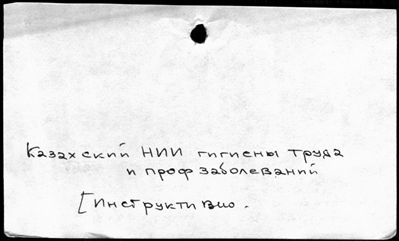 Казахский НИИ гигиены труда
и проф заболеваний
[Инструктивно.